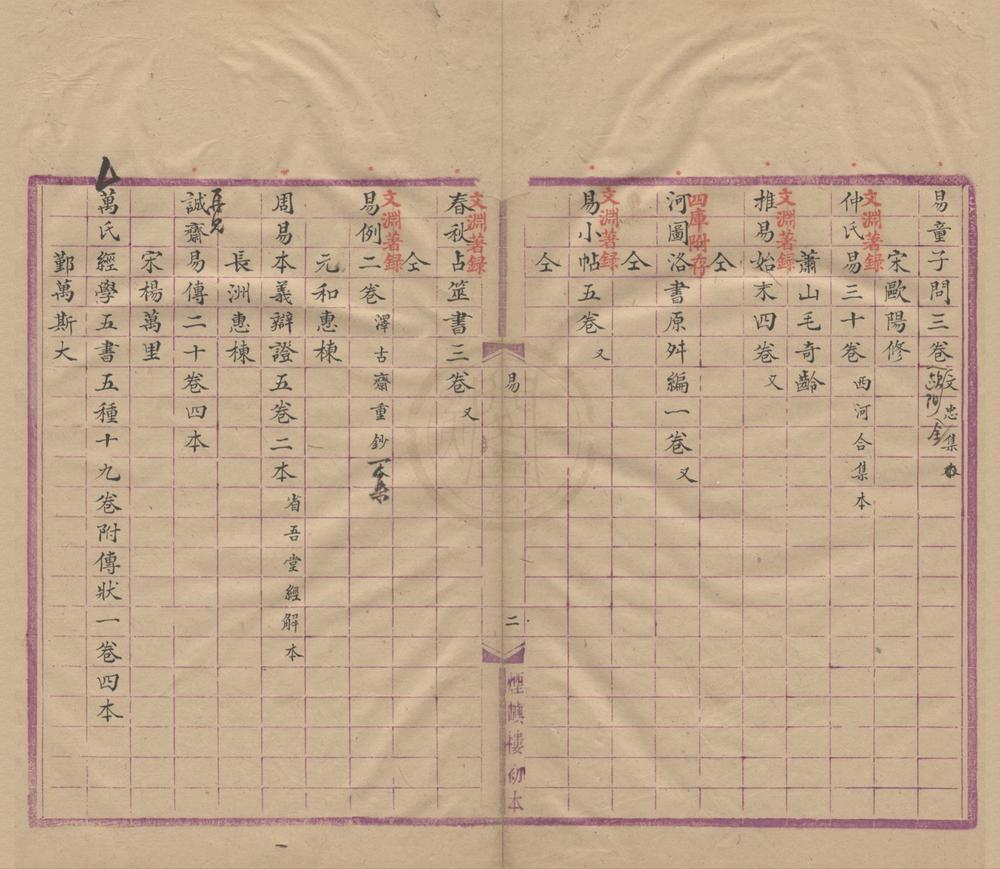 易童子問三卷 文忠集本
宋歐陽修
文淵著録
仲氏易三十卷 西河合集本
蕭山毛奇齡
文淵著録
推易始末四卷 又
仝
四庫附存
河圖洛書原舛編一卷 又
仝
文淵著録
易小帖五卷 又
仝
易
二
煙嶼樓初本
文淵著録
春秋占筮書三卷 又
仝
文淵著録
易例二卷 澤古齋重鈔
元和惠棟
周易本義辯證五卷二本 省吾堂經解本
長洲惠棟
再見
誠齋易傳二十卷四本
宋楊萬里
萬氏經學五書五種十九卷附傳狀一卷四本
鄞萬斯大